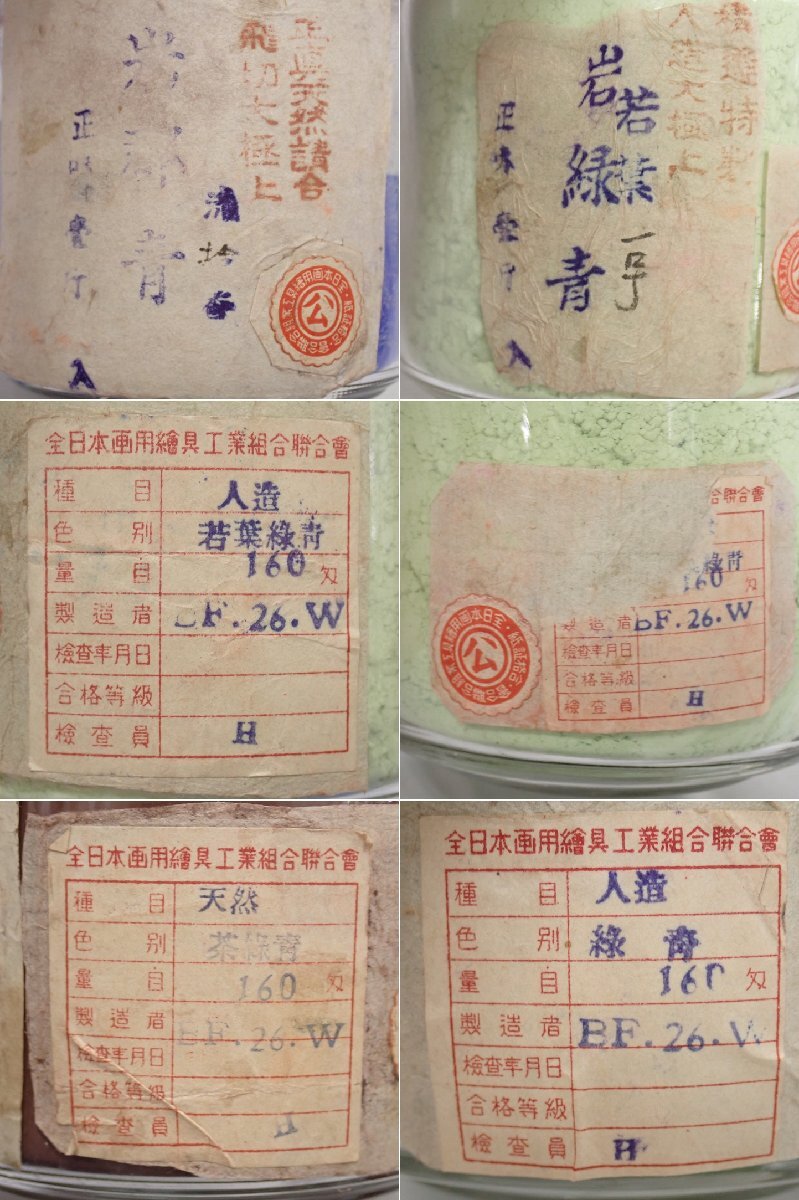 正真天然請合
飛切大極上
岩群青
正味壹斤
入
公
精選特製
人造大極上
若葉
一号
岩緑青
正味
入
全日本画用繪具工業組合聯合會
種目 人造
色別 若葉緑青
量目 160 匁
製造者 BF.26.W
檢查年月日
合格等級
檢查員 H
合聯合會
緑青
160 匁
製造者 BF.26.W
檢查年月日
合格等級
檢查員 H
公
全日本画用繪具工業組合聯合會
種目 天然
色別 茶緑青
量目 160 匁
製造者 BF.26.W
檢查年月日
合格等級
檢查員 H
全日本画用繪具工業組合聯合會
種目 人造
色別 緑青
量目 160 匁
製造者 BF.26.W
檢查年月日
合格等級
檢查員 H